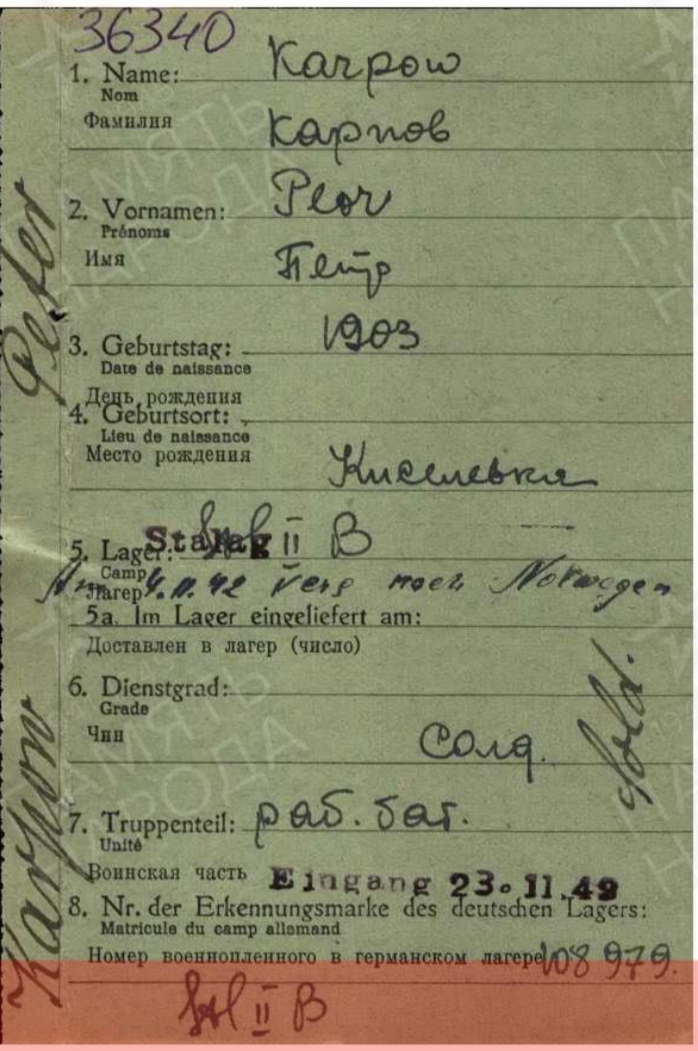 36340
1. Name: Karpow
Nom
Фамилия Карпов
2. Vornamen: Peor
Prénoms
Имя Петр
3. Geburtstag: 1903
Date de naissance
День рождения
4. Geburtsort:
Lieu de naissance
Место рождения Киселевка
5. Lager: Stalag II B
Camp
Лагерь 4.11.42 Vers nach Norwegen
5a. Im Lager eingeliefert am:
Доставлен в лагер (число)
6. Dienstgrad:
Grade
Чин Солд.
Sold.
7. Truppenteil: раб. бат.
Unité
Воинская часть Eingang 23.11.42
8. Nr. der Erkennungsmarke des deutschen Lagers:
Matricule du camp allemand
Номер военнопленного в германском лагере 108 979.
II B
Karpow Peter
ПАМЯТЬ
НАРОДА
ПАМЯТЬ
НАРОДА